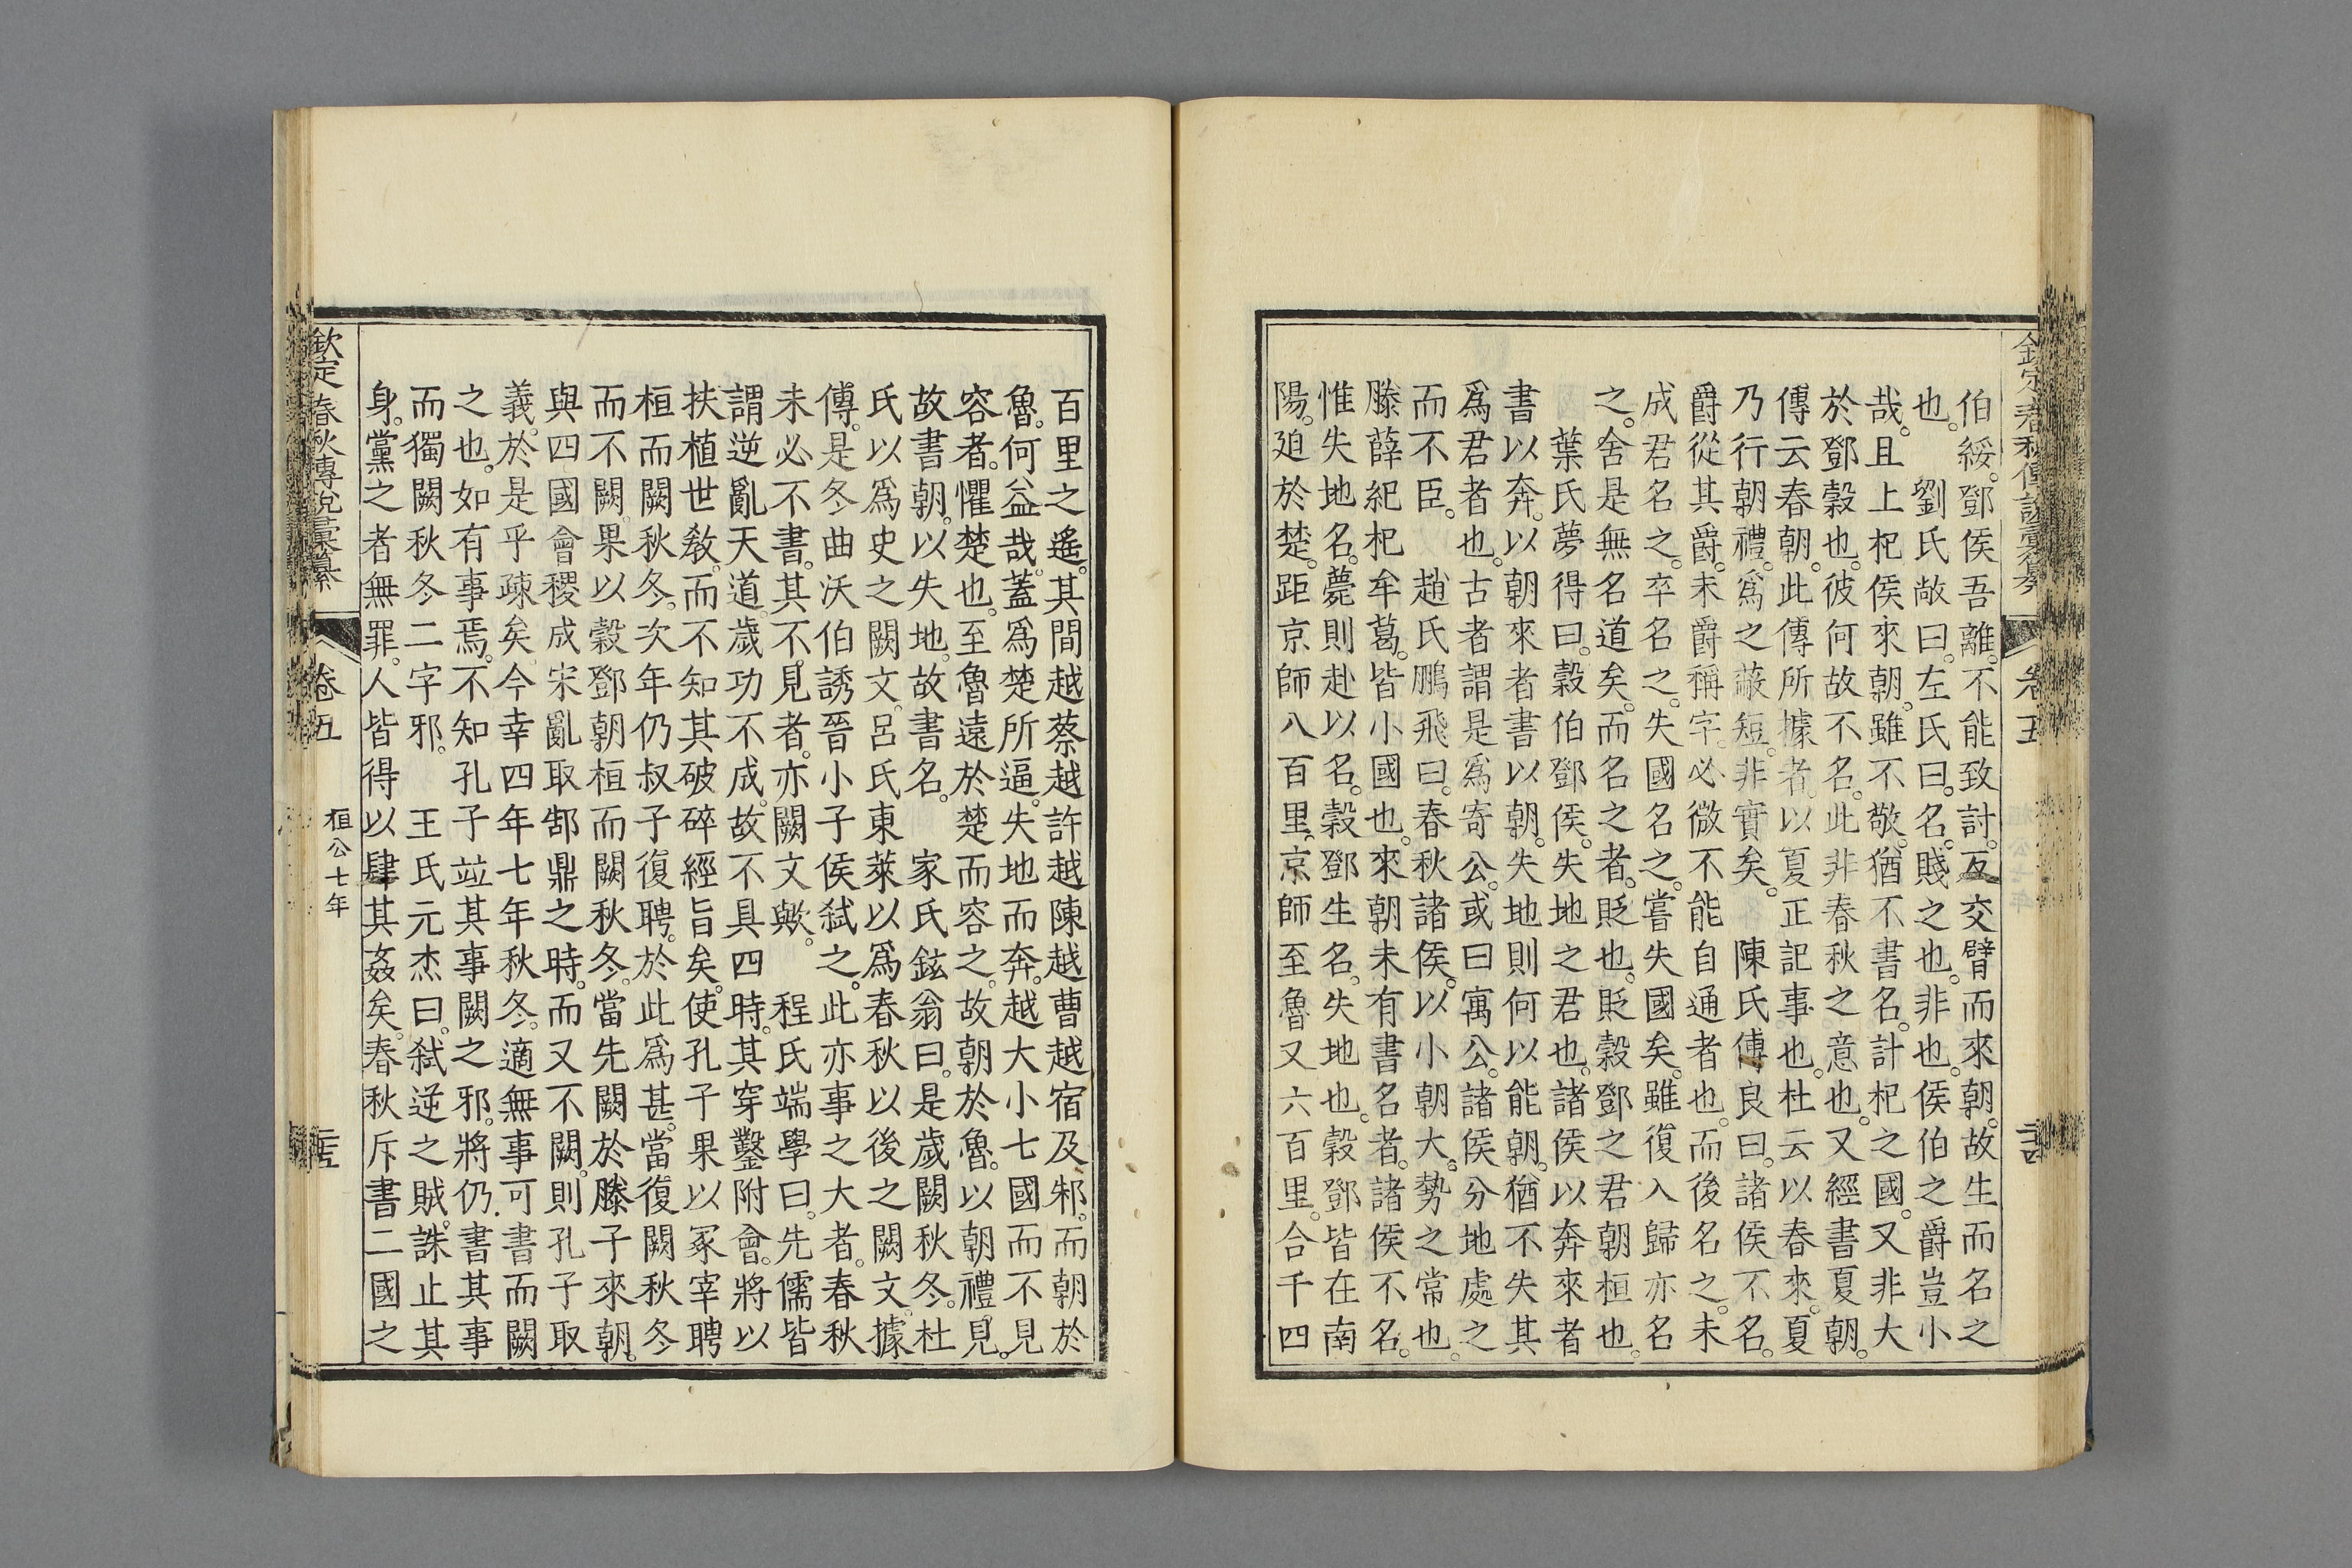 伯綏。鄧侯吾離。不能致討。反交臂而來朝。故生而名之
也。　劉氏敞曰。左氏曰。名。賤之也。非也。侯伯之爵豈小
哉。且上杞侯來朝。雖不敬。猶不書名。計杞之國。又非大
於鄧穀也。彼何故不名。此非春秋之意也。又經書夏朝。
傳云春朝。此傳所據者。以夏正記事也。杜云以春來。夏
乃行朝禮。爲之蔽短。非實矣。　陳氏傅良曰。諸侯不名。
爵從其爵。未爵稱字。必微不能自通者也。而後名之。未
成君名之。卒名之。失國名之。嘗失國矣。雖復入歸亦名
之。舍是無名道矣。而名之者。貶也。貶穀鄧之君朝桓也。
　葉氏夢得曰。穀伯鄧侯。失地之君也。諸侯以奔來者
書以奔。以朝來者書以朝。失地則何以能朝。猶不失其
爲君者也。古者謂是爲寄公。或曰寓公。諸侯分地處之
而不臣。　趙氏鵬飛曰。春秋諸侯。以小朝大。勢之常也。
滕薛紀杞牟葛。皆小國也。來朝未有書名者。諸侯不名。
惟失地名。薨則赴以名。穀鄧生名。失地也。穀鄧皆在南
陽。廹於楚。距京師八百里。京師至魯又六百里。合千四
百里之遙。其間越蔡越許越陳越曹越宿及邾。而朝於
魯。何益哉。蓋爲楚所逼。失地而奔。越大小七國而不見
容者。懼楚也。至魯遠於楚而容之。故朝於魯。以朝禮見。
故書朝。以失地。故書名。　家氏鉉翁曰。是歲闕秋冬。杜
氏以爲史之闕文。呂氏東萊以爲春秋以後之闕文。據
傳。是冬曲沃伯誘晉小子侯弒之。此亦事之大者。春秋
未必不書。其不見者。亦闕文歟。　程氏端學曰。先儒皆
謂逆亂天道。歲功不成。故不具四時。其穿鑿附會。將以
扶植世敎。而不知其破碎經旨矣。使孔子果以冢宰聘
桓而闕秋冬。次年仍叔子復聘。於此爲甚。當復闕秋冬
而不闕。果以穀鄧朝桓而闕秋冬。當先闕於滕子來朝。
與四國會稷成宋亂取郜鼎之時。而又不闕。則孔子取
義。於是乎疎矣。今幸四年七年秋冬。適無事可書而闕
之也。如有事焉。不知孔子竝其事闕之邪。將仍書其事
而獨闕秋冬二字邪。　王氏元杰曰。弒逆之賊。誅止其
身。黨之者無罪。人皆得以肆其姦矣。春秋斥書二國之
欽定春秋傳說彙纂　卷五　桓公七年